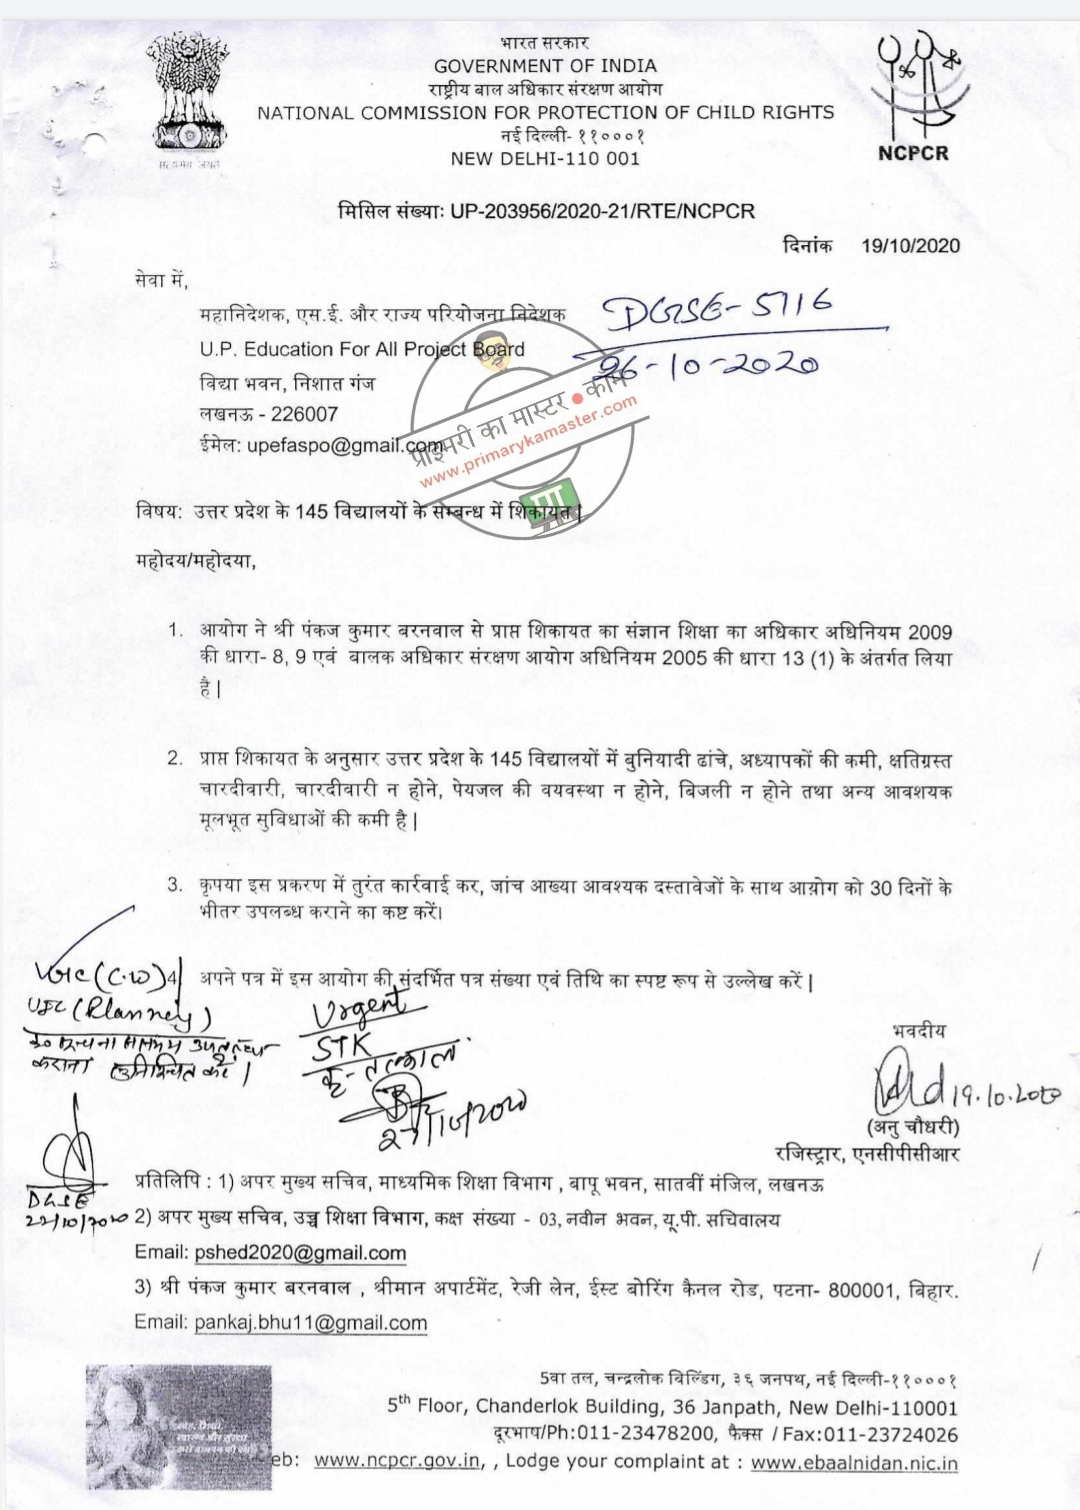 भारत सरकार
GOVERNMENT OF INDIA
राष्ट्रीय बाल अधिकार संरक्षण आयोग
NATIONAL COMMISSION FOR PROTECTION OF CHILD RIGHTS
नई दिल्ली- ११०००१
NEW DELHI-110 001
सत्यमेव जयते
NCPCR
मिसिल संख्याः UP-203956/2020-21/RTE/NCPCR
दिनांक 19/10/2020
सेवा में,
महानिदेशक, एस.ई. और राज्य परियोजना निदेशक
U.P. Education For All Project Board
विद्या भवन, निशात गंज
लखनऊ - 226007
ईमेल: upefaspo@gmail.com
DGSE-5716
26-10-2020
प्राइमरी का मास्टर ● कॉम
www.primarykamaster.com
विषय: उत्तर प्रदेश के 145 विद्यालयों के सम्बन्ध में शिकायत |
महोदय/महोदया,
1. आयोग ने श्री पंकज कुमार बरनवाल से प्राप्त शिकायत का संज्ञान शिक्षा का अधिकार अधिनियम 2009
की धारा- 8, 9 एवं बालक अधिकार संरक्षण आयोग अधिनियम 2005 की धारा 13 (1) के अंतर्गत लिया
है |
2. प्राप्त शिकायत के अनुसार उत्तर प्रदेश के 145 विद्यालयों में बुनियादी ढांचे, अध्यापकों की कमी, क्षतिग्रस्त
चारदीवारी, चारदीवारी न होने, पेयजल की वयवस्था न होने, बिजली न होने तथा अन्य आवशयक
मूलभूत सुविधाओं की कमी है |
3. कृपया इस प्रकरण में तुरंत कार्रवाई कर, जांच आख्या आवश्यक दस्तावेजों के साथ आयोग को 30 दिनों के
भीतर उपलब्ध कराने का कष्ट करें।
4| अपने पत्र में इस आयोग की संदर्भित पत्र संख्या एवं तिथि का स्पष्ट रूप से उल्लेख करें |
(C.W)
(Planning)
कराना सुनिश्चित करें |
DGSE
Urgent
STK
कृ- तत्काल
27/10/2020
भवदीय
19.10.2020
(अनु चौधरी)
रजिस्ट्रार, एनसीपीसीआर
प्रतिलिपि : 1) अपर मुख्य सचिव, माध्यमिक शिक्षा विभाग , बापू भवन, सातवीं मंजिल, लखनऊ
2) अपर मुख्य सचिव, उच्च शिक्षा विभाग, कक्ष संख्या - 03, नवीन भवन, यू.पी. सचिवालय
Email: pshed2020@gmail.com
3) श्री पंकज कुमार बरनवाल , श्रीमान अपार्टमेंट, रेजी लेन, ईस्ट बोरिंग कैनल रोड, पटना- 800001, बिहार.
Email: pankaj.bhu11@gmail.com
5वा तल, चन्द्रलोक विल्डिंग, ३६ जनपथ, नई दिल्ली-११०००१
5th Floor, Chanderlok Building, 36 Janpath, New Delhi-110001
दूरभाष/Ph:011-23478200, फैक्स / Fax:011-23724026
eb: www.ncpcr.gov.in, , Lodge your complaint at : www.ebaalnidan.nic.in